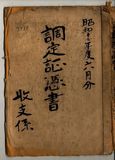 昭和十二年度六月分
調定証憑書
收支係